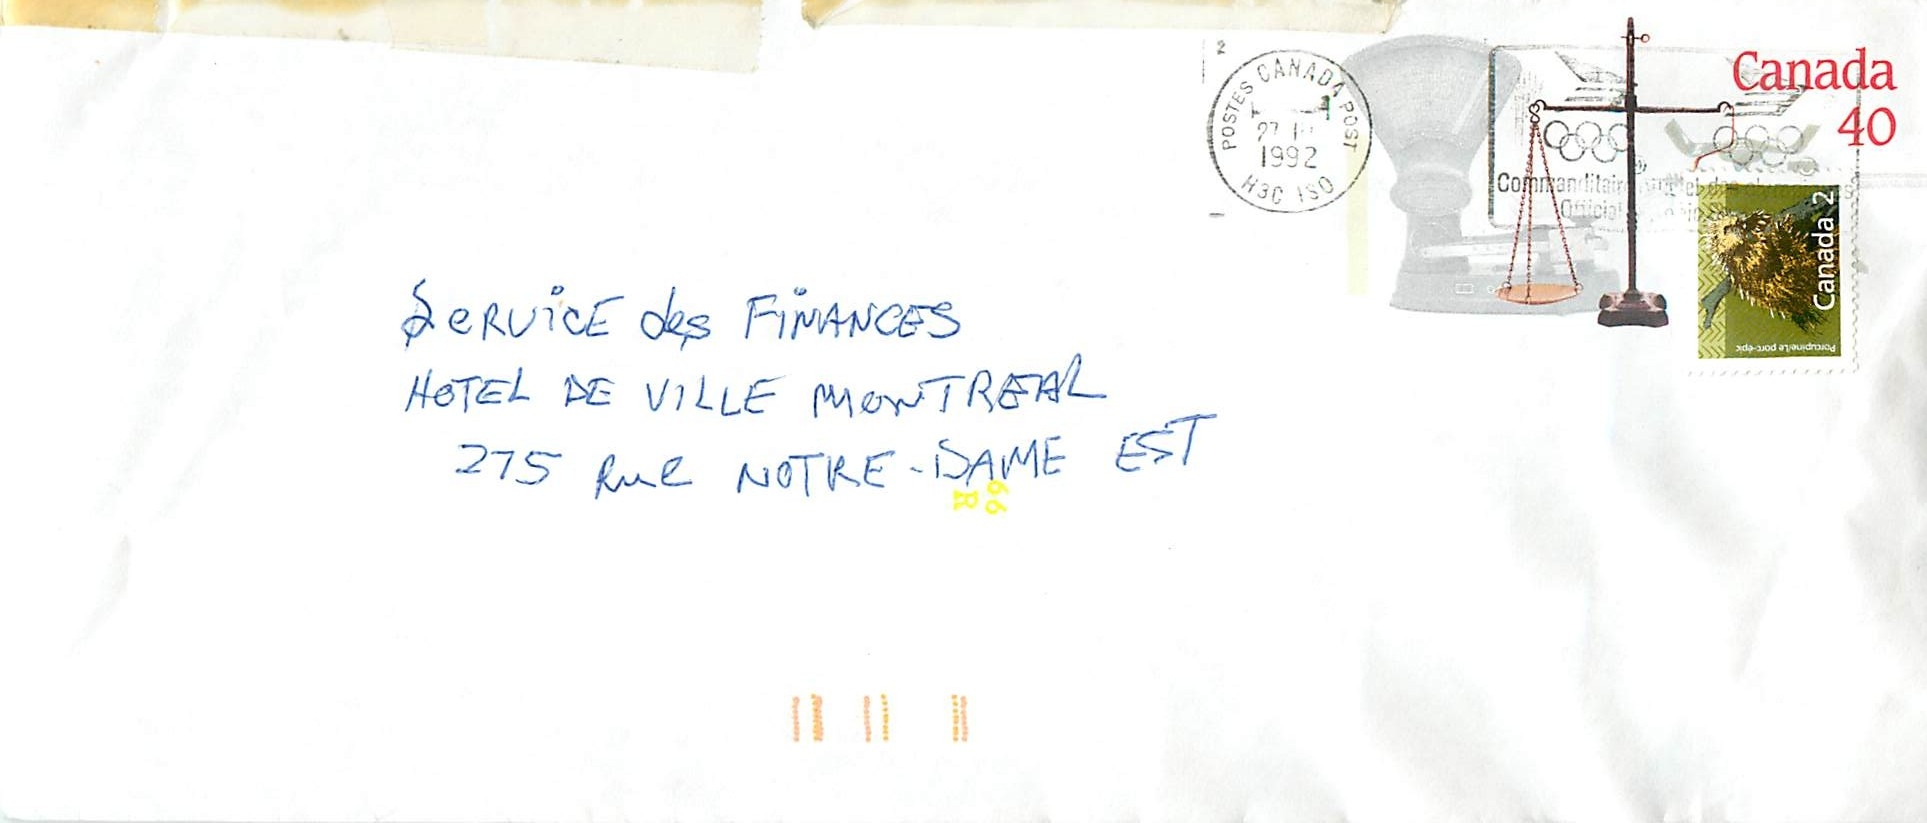 2
POSTES CANADA POST
27
1992
H3C 1S0
Canada
40
Commanditaire
Official
Canada 2
Porcupine/Le porc-épic
SERVICE des FINANCES
HOTEL DE VILLE MONTREAL
275 Rue NOTRE-DAME EST
66
R